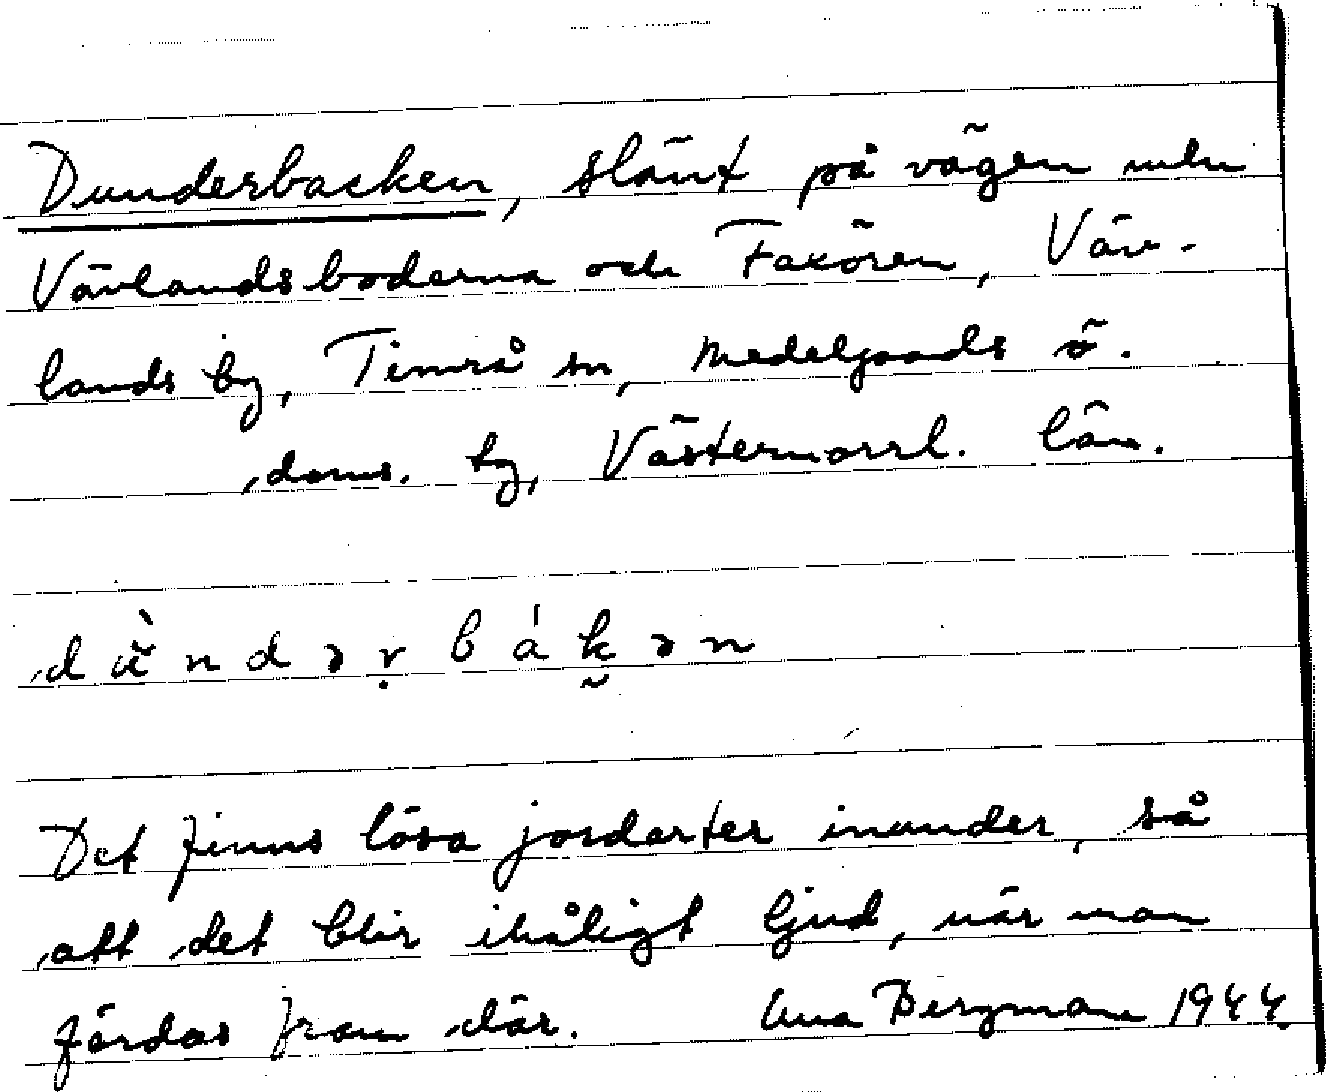 Dunderbacken, slänt på vägen mln
Vävlandsboderna och Faxören, Väv-
lands by, Timrå sn, Medelpads ö.
doms. by, Västernorrl. län.
dùndəṛbák̮ən
Det finns lösa jordarter inunder, så
att det blir ihåligt ljud, när man
färdas fram där. Anna Bergman 1944.